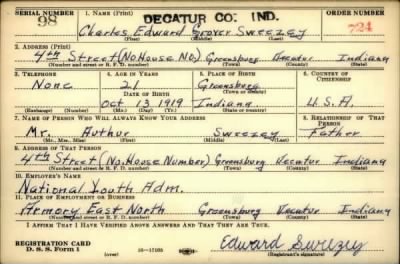 SERIAL NUMBER
1. NAME (Print)
DECATUR CO. IND.
ORDER NUMBER
98
Charles Edward Grover Sweezey
724
(First) (Middle) (Last)
2. ADDRESS (Print)
4th Street (No House No.) Greensburg Decatur Indiana
(Number and street or R. F. D. number) (Town) (County) (State)
3. TELEPHONE
4. AGE IN YEARS
5. PLACE OF BIRTH
6. COUNTRY OF CITIZENSHIP
None
21
Greensburg
DATE OF BIRTH
(Town or county)
Oct 13 1919
Indiana
U.S.A.
(Exchange) (Number)
(Mo.) (Day) (Yr.)
(State or country)
7. NAME OF PERSON WHO WILL ALWAYS KNOW YOUR ADDRESS
8. RELATIONSHIP OF THAT PERSON
Mr. Authur Sweezey
Father
(Mr., Mrs., Miss) (First) (Middle) (Last)
9. ADDRESS OF THAT PERSON
4th Street (No. House Number) Greensburg Decatur Indiana
(Number and street or R. F. D. number) (Town) (County) (State)
10. EMPLOYER'S NAME
National Youth Adm.
11. PLACE OF EMPLOYMENT OR BUSINESS
Armory East North Greensburg Decatur Indiana
(Number and street or R. F. D. number) (Town) (County) (State)
I AFFIRM THAT I HAVE VERIFIED ABOVE ANSWERS AND THAT THEY ARE TRUE.
REGISTRATION CARD
D. S. S. Form 1
(over)
16—17105
Edward Swezey
(Registrant's signature)